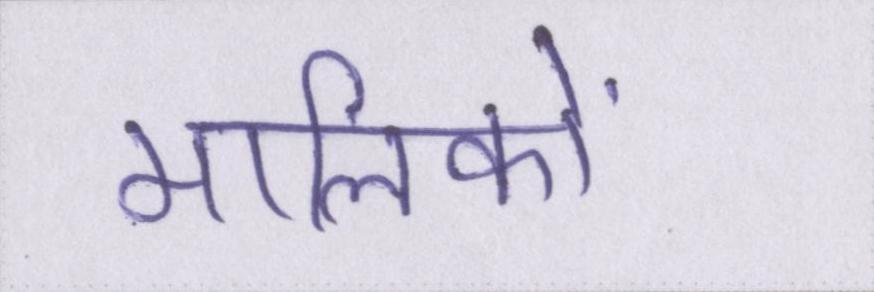 मालिकों